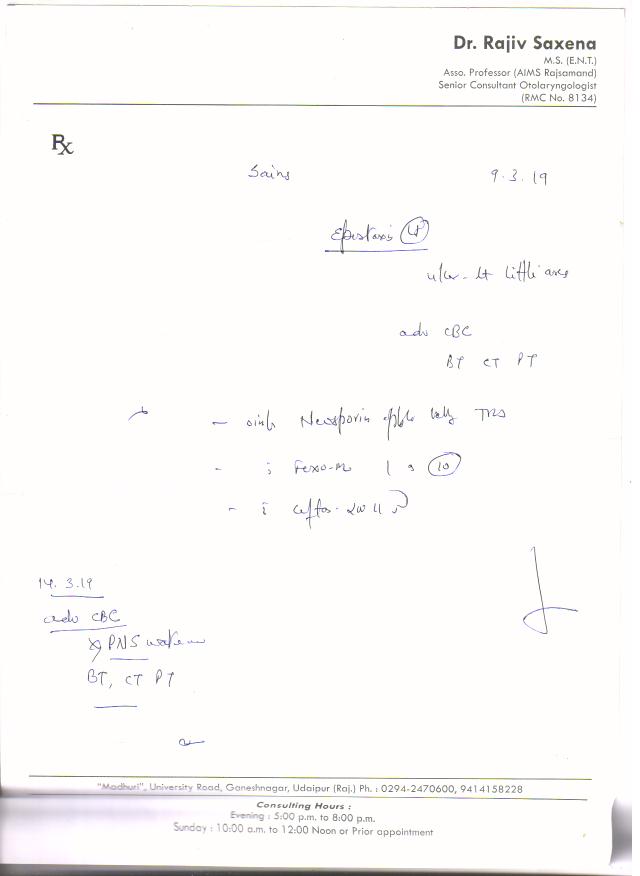 Dr. Rajiv Saxena
M.S. (E.N.T.)
Asso. Professor (AIMS Rajsamand)
Senior Consultant Otolaryngologist
(RMC No. 8134)
Rx
9.3.19
Epistaxis
Lt little area
adv CBC
BT CT PT
- oint Neosporin TDS
- Fexo-M 1 10
- 200
14.3.19
adv CBC
PNS
BT, CT PT
"Madhuri", University Road, Ganeshnagar, Udaipur (Raj.) Ph. : 0294-2470600, 9414158228
Consulting Hours :
Evening : 5:00 p.m. to 8:00 p.m.
Sunday : 10:00 a.m. to 12:00 Noon or Prior appointment